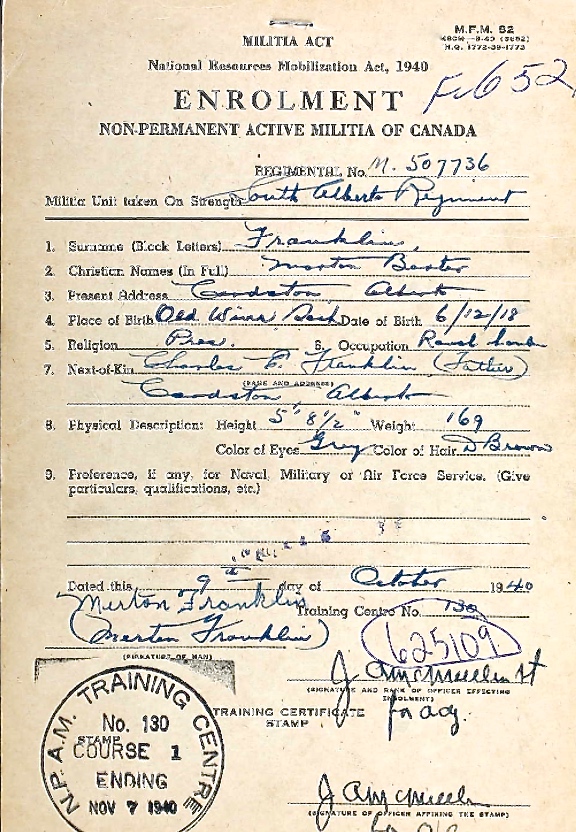 MILITIA ACT
M.F.M. 82
H.Q. 1772-39-1773
National Resources Mobilization Act, 1940
ENROLMENT
NON-PERMANENT ACTIVE MILITIA OF CANADA
REGIMENTAL No. M. 507736
Militia Unit taken On Strength South Alberta Regiment
1. Surname (Block Letters) Franklin
2. Christian Names (In Full) Merton Baxter
3. Present Address Cardston Alberta
4. Place of Birth Old Wives Sask Date of Birth 6/12/18
5. Religion Pres. 6. Occupation
7. Next-of-Kin Charles E. Franklin (Father)
(NAME AND ADDRESS)
Cardston Alberta
8. Physical Description: Height 5' 8 1/2" Weight 169
Color of Eyes Grey Color of Hair D Brown
9. Preference, if any, for Naval, Military or Air Force Service. (Give
particulars, qualifications, etc.)
Dated this 9th day of October 1940
Merton Franklin Training Centre No. 130
(Merton Franklin) 625109
(SIGNATURE OF MAN)
(SIGNATURE AND RANK OF OFFICER EFFECTING
ENROLMENT)
TRAINING CERTIFICATE for adj.
STAMP
N.P.A.M. TRAINING CENTRE
No. 130
STAMP
COURSE 1
ENDING
NOV 7 1940
(SIGNATURE OF OFFICER AFFIXING THE STAMP)